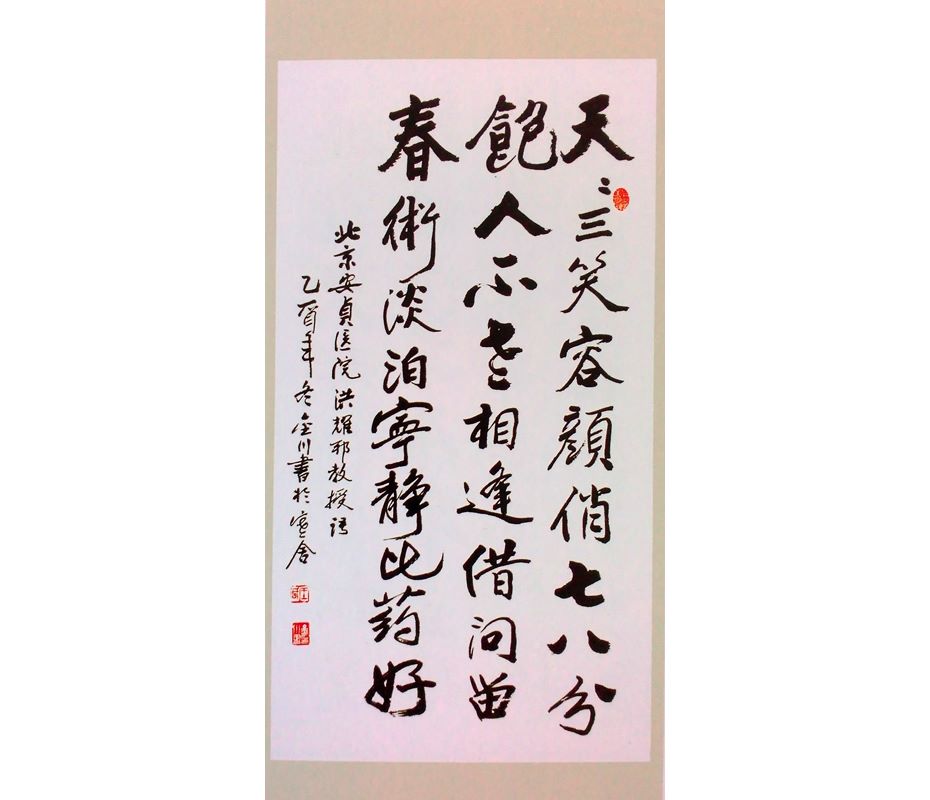 天〻三笑容顔俏七八分
飽人不老相逢借问留
春術淡泊寧静比药好
北京安貞医院洪耀邦教授语
乙酉年冬金川書於舍